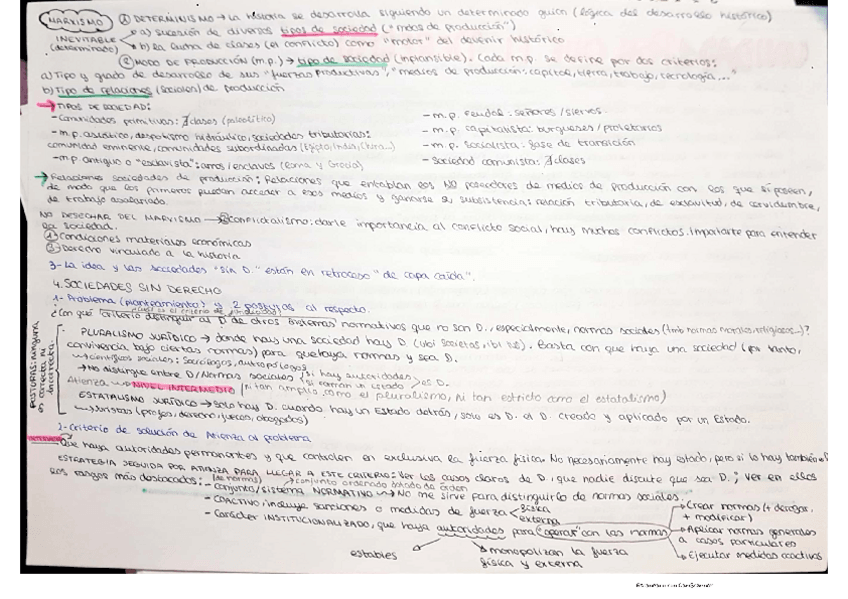 MARXISMO ① DETERMINISMO → La historia se desarrolla siguiendo un determinado guión (lógica del desarrollo histórico)
INEVITABLE (determinado) → a) sucesión de diversos tipos de sociedad ("modos de producción")
→ b) La lucha de clases (el conflicto) como "motor" del devenir histórico
② MODO DE PRODUCCIÓN (m.p.) → tipo de sociedad (implantible). Cada m.p. se define por dos criterios:
a) Tipo y grado de desarrollo de sus "fuerzas productivas", "medios de producción: capital, tierra, trabajo, tecnología,..."
b) Tipo de relaciones (sociales) de producción
→ TIPOS DE SOCIEDAD:
- Comunidades primitivas: ∄ clases (paleolítico)
- m.p. asiático, despotismo hidráulico, sociedades tributarias:
comunidad eminente, comunidades subordinadas (Egipto, India, China...)
- m.p. antiguo o "esclavista": amos/esclavos (Roma y Grecia)
- m.p. feudal: señores/siervos
- m.p. capitalista: burgueses/proletarios
- m.p. socialista: fase de transición
- sociedad comunista: ∄ clases
→ Relaciones sociedades de producción: Relaciones que entablan los NO poseedores de medios de producción con los que sí poseen,
de modo que los primeros puedan acceder a esos medios y ganarse su subsistencia: relación tributaria, de esclavitud, de servidumbre,
de trabajo asalariado.
NO DESECHAR DEL MARXISMO → Conflictualismo: darle importancia al conflicto social, hay muchos conflictos. Importante para entender
la sociedad.
① Condiciones materiales económicas
② Derecho vinculado a la historia
3- La idea y las sociedades "sin D." están en retroceso "de capa caída".
4. SOCIEDADES SIN DERECHO
1- Problema (planteamiento) y 2 posturas al respecto
¿Con qué criterio distinguir al D de otros sistemas normativos que no son D., especialmente, normas sociales (tmb normas morales, religiosas...)?
POSTURAS: ninguna es correcta ni incorrecta.
PLURALISMO JURÍDICO → donde hay una sociedad hay D. (ubi societas, ibi ius). Basta con que haya una sociedad (por tanto,
convivencia bajo ciertas normas) para que haya normas y sea D.
↳ científicos sociales: sociólogos, antropólogos
→ No distingue entre D/Normas sociales
Atienza → NIVEL INTERMEDIO (ni tan amplio como el pluralismo, ni tan estricto como el estatalismo)
ESTATALISMO JURÍDICO → solo hay D. cuando hay un Estado detrás, solo es D. el D. creado y aplicado por un Estado.
↳ Juristas (profes, derecho, jueces, abogados)
2- Criterio de solución de Atienza al problema
Que haya autoridades permanentes y que controlen en exclusiva la fuerza física. No necesariamente hay estado, pero si lo hay también
ESTRATEGIA SEGUIDA POR ATIENZA PARA LLEGAR A ESTE CRITERIO: Ver los casos claros de D. que nadie discute que sea D.; ver en ellos
los rasgos más destacados:
- conjunto/sistema NORMATIVO → No me sirve para distinguirlo de normas sociales.
- COACTIVO, incluye sanciones o medidas de fuerza < física
externa
- Carácter INSTITUCIONALIZADO, que haya autoridades para "operar" con las normas
→ Crear normas (+ derogar, + modificar)
→ Aplicar normas generales a casos particulares
→ Ejecutar medidas coactivas
estables
monopolizan la fuerza
física y externa